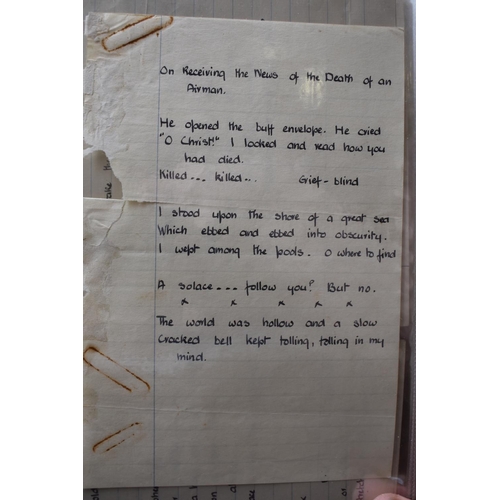 On Receiving the News of the Death of an
Airman.
He opened the buff envelope. He cried
"O Christ!" I looked and read how you
had died.
Killed... killed... Grief-blind
I stood upon the shore of a great sea
Which ebbed and ebbed into obscurity.
I wept among the pools. O where to find
A solace... follow you? But no.
x x x x x
The world was hollow and a slow
Cracked bell kept tolling, tolling in my
mind.